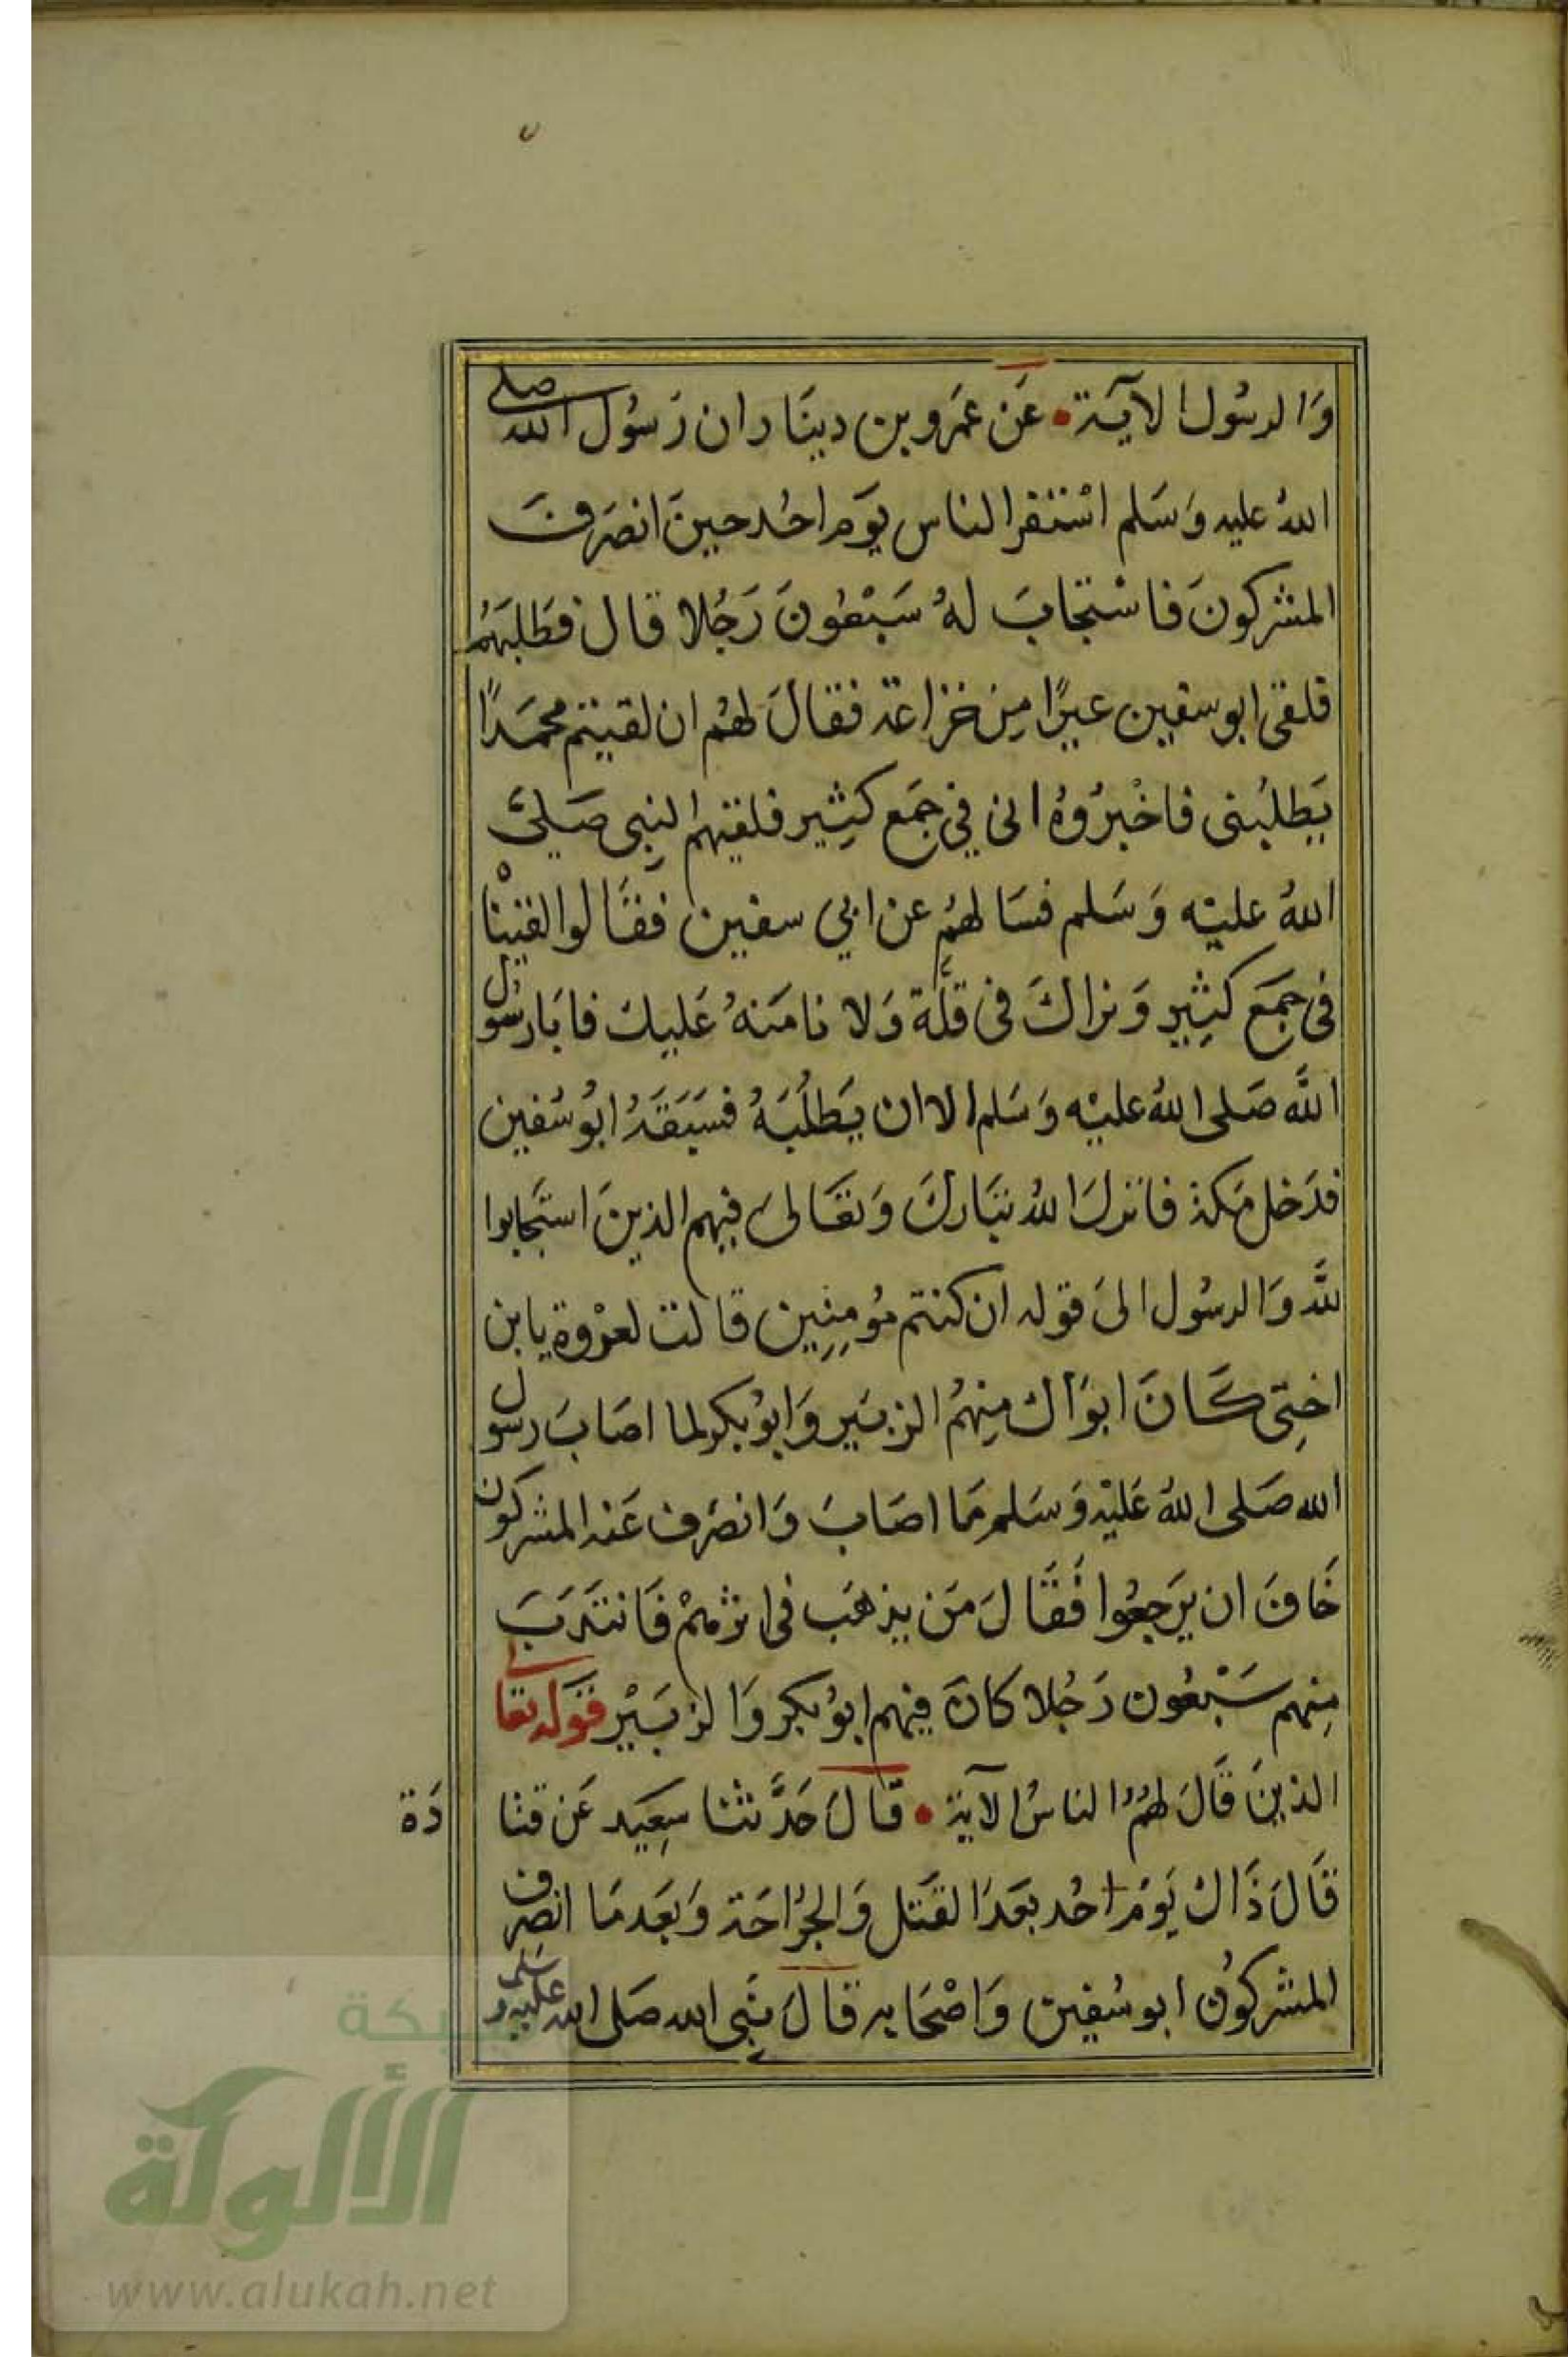 وَالرسُول الآية • عَن عمَرو بن دينَار ان رَسُول الله صلى
اللهُ عليه وَسَلم اسْتنفر الناس يَوم احُد حينَ انصَرفَ
المشركونَ فاسْتجَابَ لهُ سَبْعُونَ رَجُلا قال فطَلبَهُم
فلقى ابو سفين عيرًا مِن خزاعة فقالَ لهُم ان لقيتم محمَدًا
يَطلبُنى فاخْبرُوهُ انى في جمَع كثِير فلقيهم النبِى صَلىَ
اللهُ عليْه وَسَلم فسَالهُم عن ابي سفين فقَالوا لقيْنا
فى جمَع كثِير وَنراكَ فى قلَّة وَلا نامَنهُ عَليك فابَا رسُول
اللَّه صَلى اللهُ عليْه وَسَلم الا ان يَطلُبَهُ فسَبَقَهُ ابُو سُفين
فدَخل مَكة فانزلَ اللهُ تبَاركَ وَتعَالىَ فيهم الذينَ استجَابوا
للَّه وَالرسُول الىَ قوله ان كنتم مُومِنِين قالت لعرْوة يابن
اختِى كَانَ ابوَاك مِنهمُ الزبَير وَابوُ بكر لما اصَابَ رسول
الله صَلى اللهُ عَليْه وَسَلم مَا اصَابَ وَانصَرف عَنه المشركون
خَافَ ان يَرجعُوا فقَالَ مَن يذهَب فى اثرهمْ فَانتدَبَ
مِنهم سَبْعُون رَجُلا كانَ فِيهم ابوُ بكر وَالزبَيْر قوَله تعالى
الذينَ قَالَ لهُمُ الناسُ الآية • قالَ حَدَّثنا سعِيَد عَن قتا دَة
قَالَ ذَاك يَومَ احُد بعَدَ القَتل وَالجرُاحَة وَبعَد مَا انصرف
المشركوُن ابو سُفين وَاصْحَابه قالَ نبَى الله صَلى الله عليه وسَلم
شبكة
الألوكة
www.alukah.net